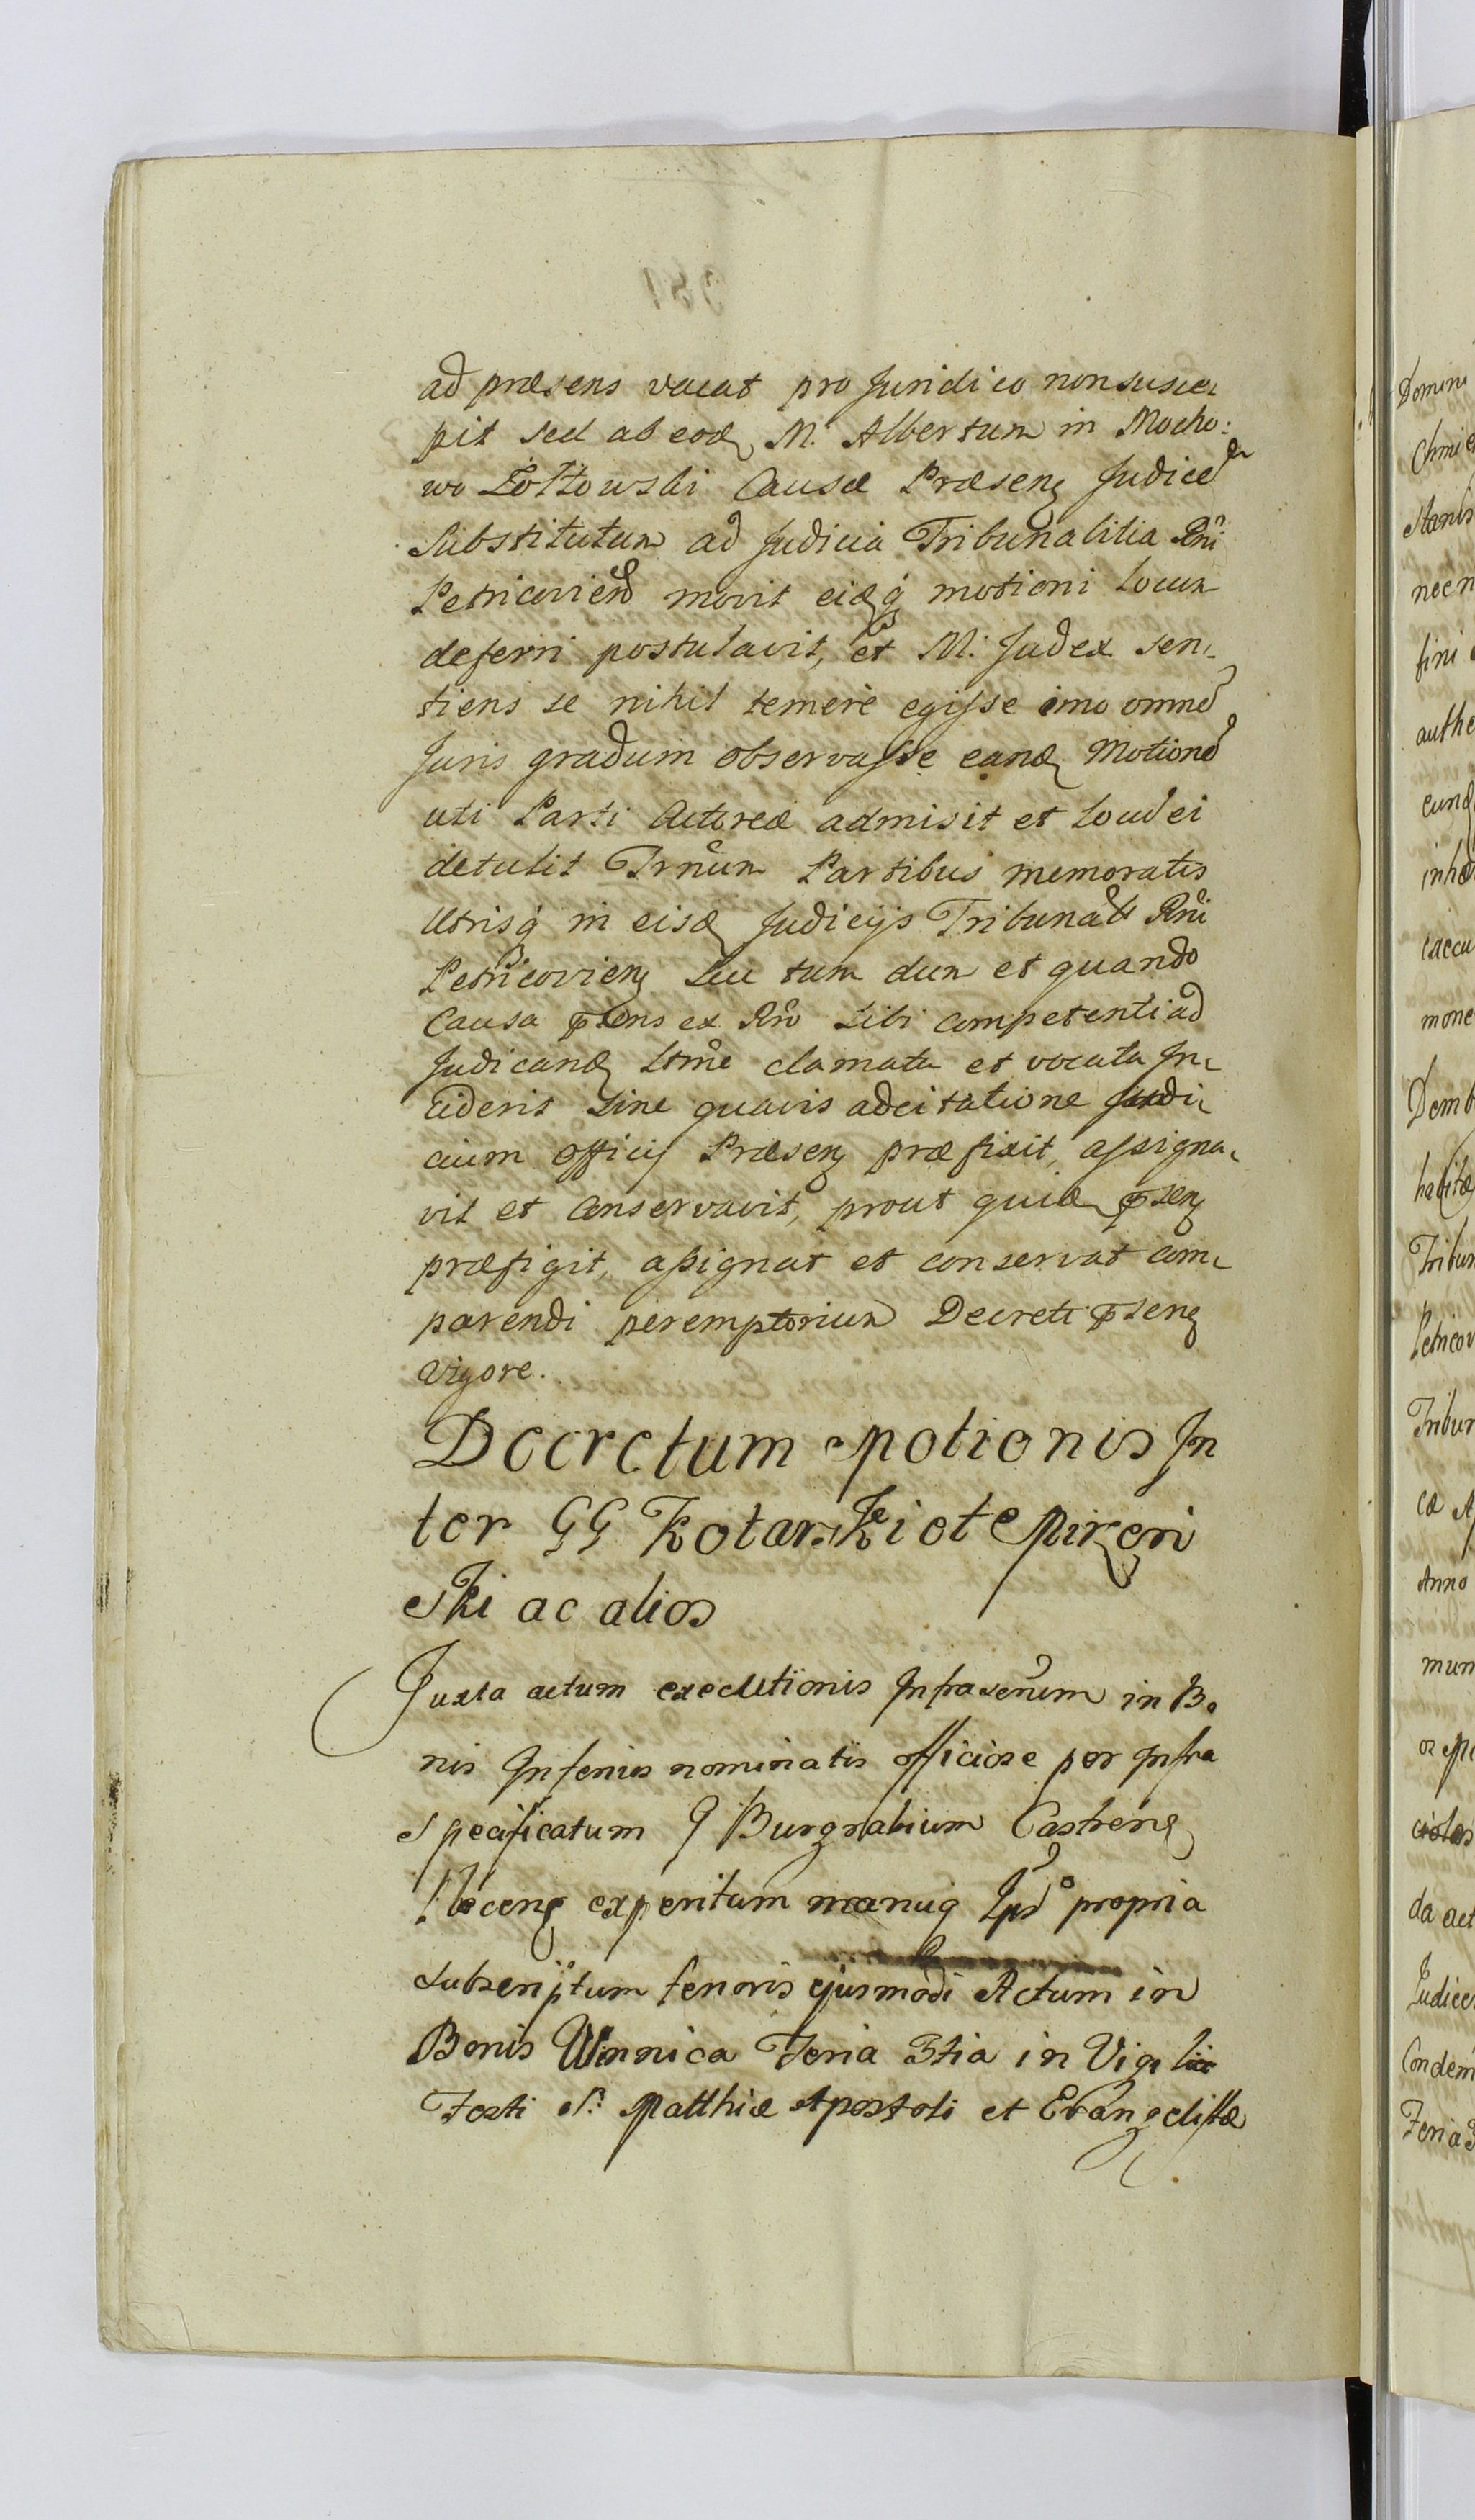 ad præsens vacat pro Juridico non susce
pit sed ab eodē M. Albertum in Mocho:
wo Zołtowski Causæ Præseng Judicem
Substitutum ad Judicia Tribunalitia Rni
Petricovien movit eidēq motioni locum
deferri postulavit, et M. Judex sen
tiens se nihil temere egisse imo omnem
Juris gradum observasse eand Motionem
uti Parti Actoreæ admisit et Locum ei
detulit Trnum Partibus memoratis
Utrisq in eisd Judicijs Tribunal Rni
Petricovieng seu tum dum et quando
Causa psens ex Rro sibi competenti ad
Judicand ltme clamata et vocata In
cideris sine quavis adcitatione Judi
cium officij Præseng præfixit, assigna
vit et conservavit, prout quid pseng
præfigit, assignat et conservat com
parendi peremptorium Decreti pseng
vigore.
Decretum Motionis In
ter GG Kotarski et Mirzeń
ski ac alios
Juxta actum executionis Infrascrum in Bo
nis Inferius nominatis officiose per Infra
specificatum G Burgrabium Castreng
Ploceng expeditum manuq Ipso propria
subscriptum tenoris ejusmodi Actum in
Bonis Winnica Feria 3tia in Vigilia
Festi S. Matthiæ Apostoli et Evangelistæ